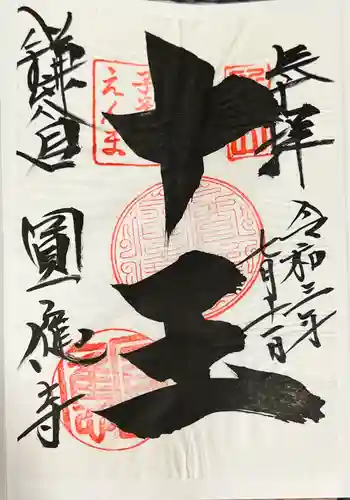 奉拝
令和三年
七月十一日
十王
子育
えんま
鎌倉
圓應寺